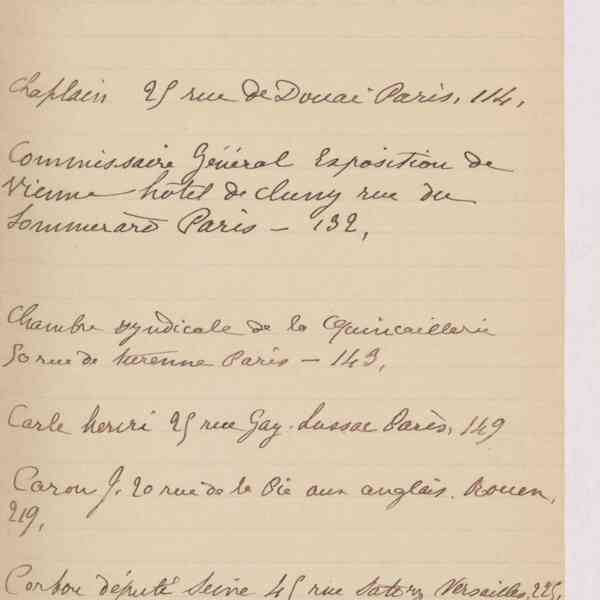 Chaplain 25 rue de Douai Paris. 114.
Commissaire Général Exposition de
Vienne hôtel de Cluny rue du
Sommerard Paris – 132.
Chambre syndicale de la Quincaillerie
50 rue de Turenne Paris – 143.
Carle henri 25 rue Gay-Lussac Paris. 149
Caron J. 20 rue de la Pie aux anglais. Rouen.
219.
Corbon député Seine 45 rue Satory Versailles. 225.